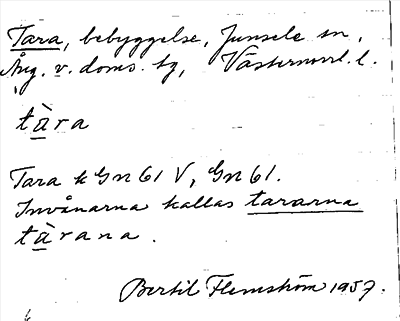 Tara, bebyggelse, Junsele sn,
Ång. v. doms. tg, Västernorrl. l.
tàra
Tara k Gn 61 V, Gn 61.
Invånarna kallas tararna
tàrana.
Bertil Flemström 1957.